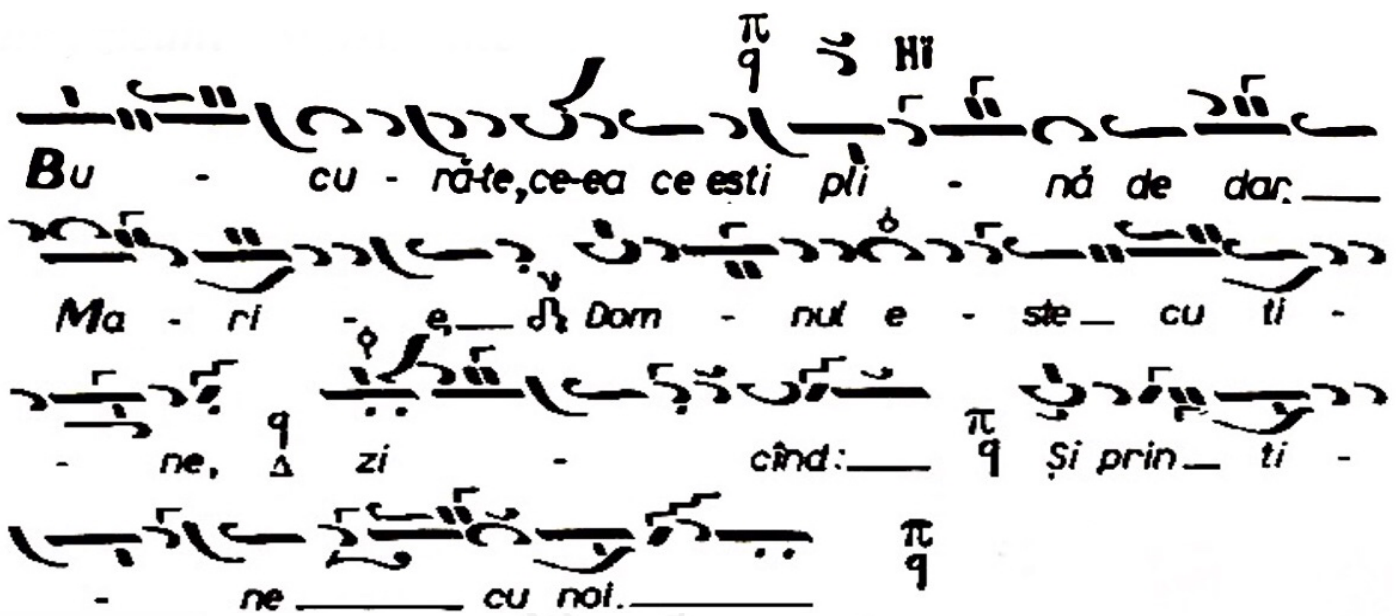 π q Hï
Bu - cu - ră-te, ce-ea ce ești pli - nă de dar.
Ma - ri - e, Dom - nul e - ste cu ti -
- ne, q Δ zi - cînd: π q Și prin ti -
- ne cu noi. π q